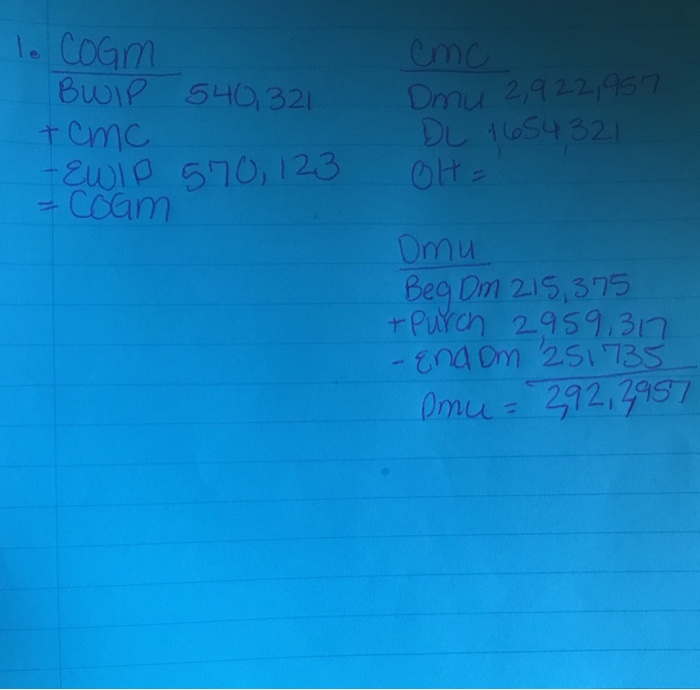 1. COGM
BWIP 540,321
+ CMC
- EWIP 570,123
= COGM
CMC
DMU 2,922,957
DL 1,654,321
OH =
DMU
Beg DM 215,375
+ Purch 2,959,317
- End DM 251,735
DMU = 2,92,2,957